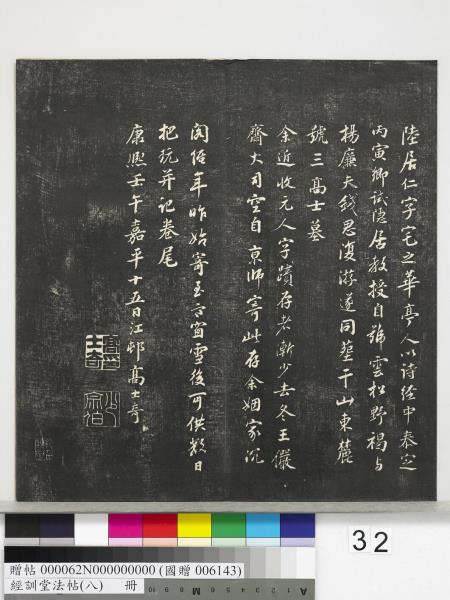 陸居仁字宅之華亭人以詩經中泰定
丙寅鄉試隱居教授自號雲松野褐與
楊廉夫錢思復游遂同葬干山東麓
號三高士墓
余近收元人字蹟存老漸少去冬王儼
齋大司空自京師寄此存余姻家沉
閣經年昨始寄至言窗雪後可供數日
把玩并記卷尾
康熙壬午嘉平十五日江邨高士奇
高士奇
32
贈帖 000062N000000000 (國贈 006143)
經訓堂法帖(八) 冊